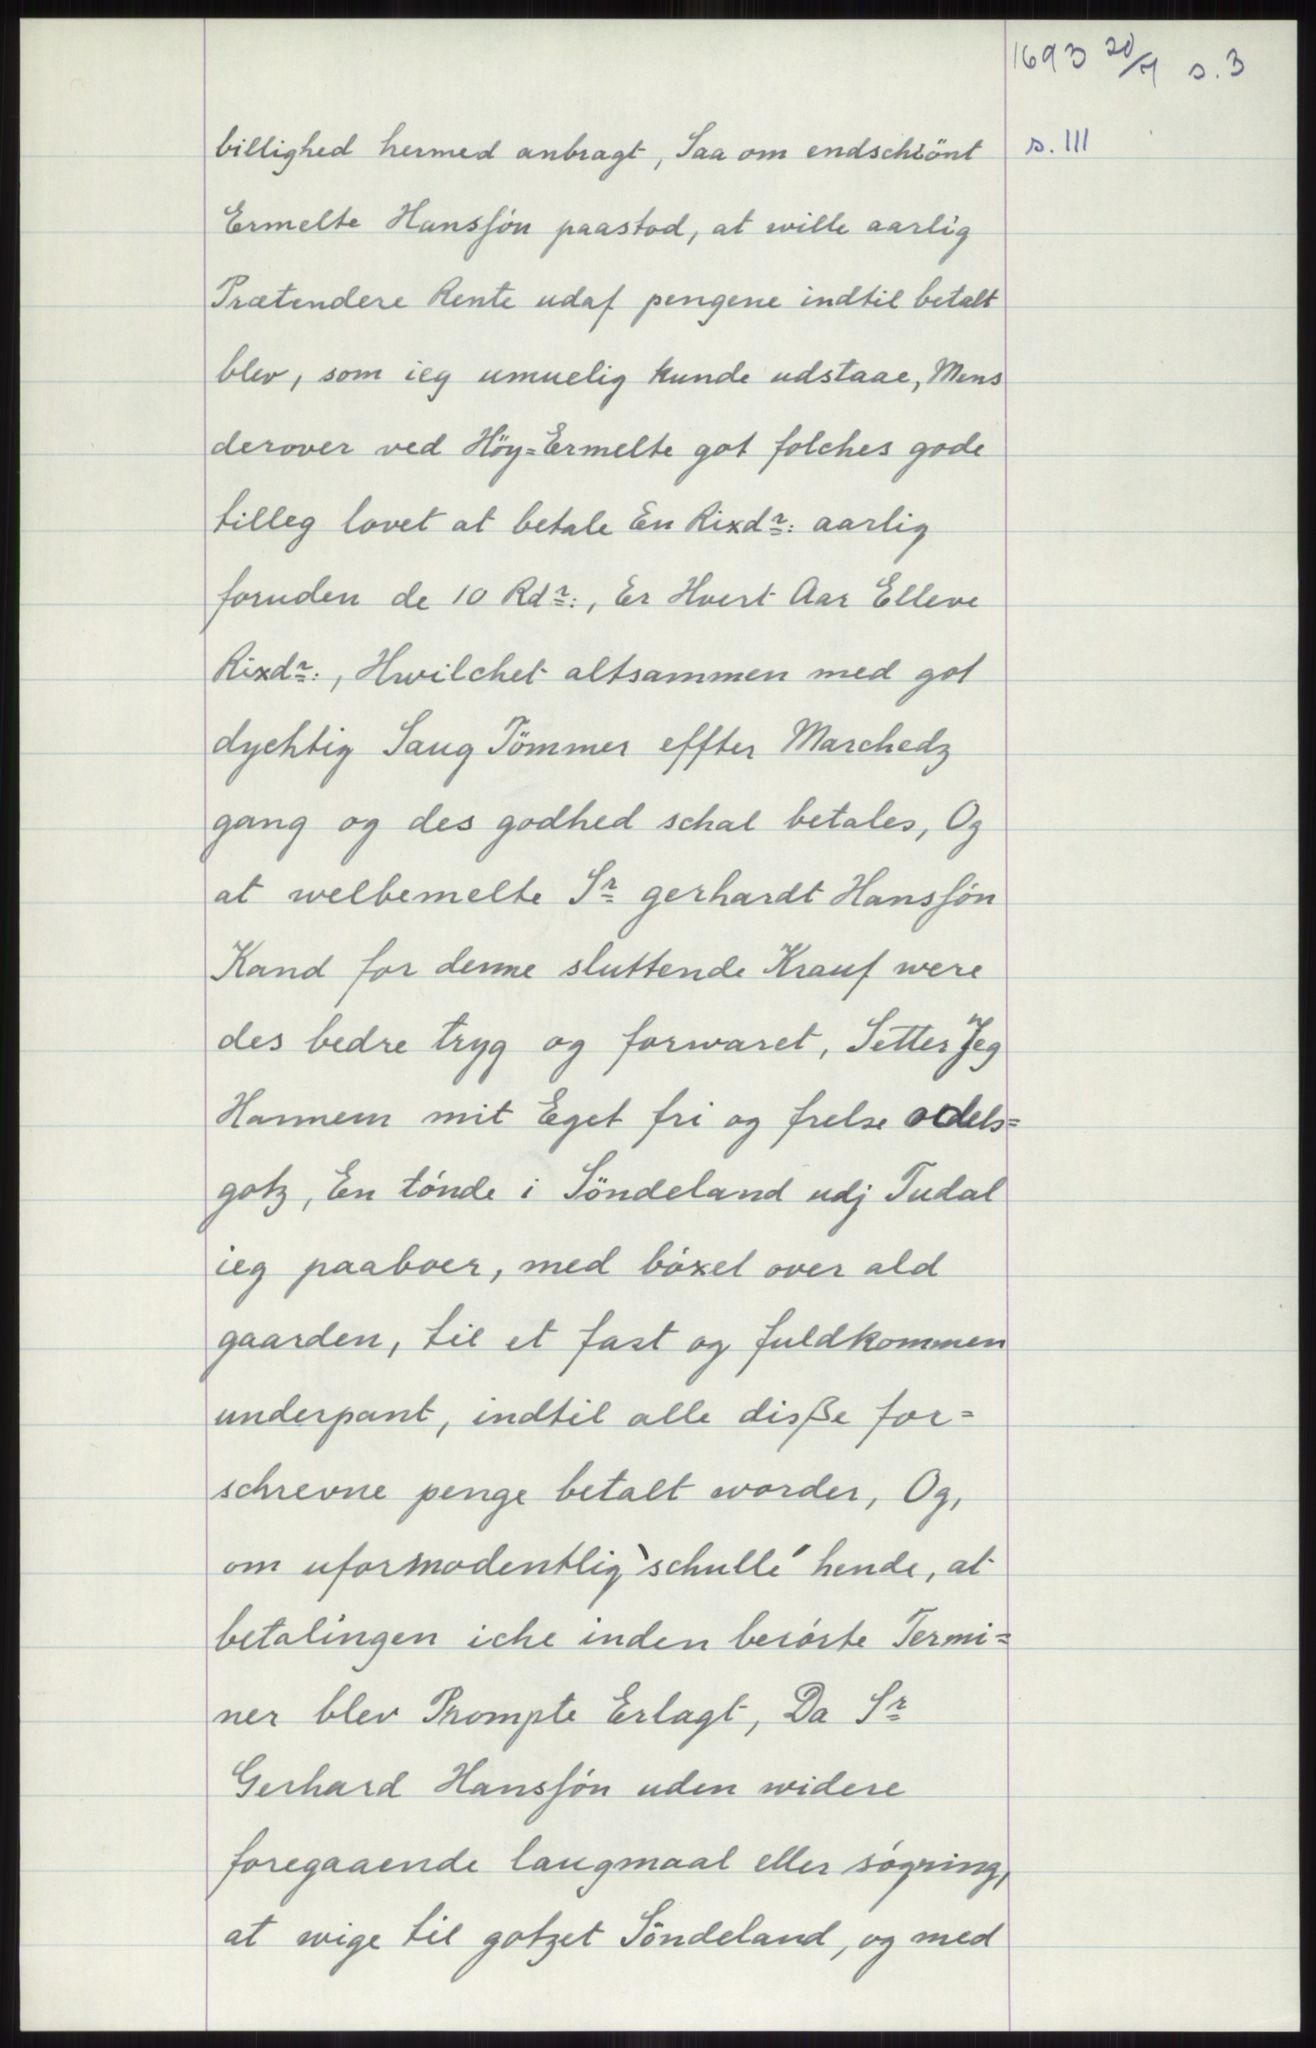 1693 20/7 s. 3
s. 111
billighed hermed anbragt, Saa om endschiönt
Ermelte Hansſón paastod, at wille aarlig
Prætendere Rente udaf pengene indtil betalt
blev, som ieg umuelig kunde udstaae, Mens
derover ved Höy=Ermelte got folches gode
tilleg lovet at betale En Rixdr: aarlig
foruden de 10 Rdr:, Er Hvert Aar Elleve
Rixdr:, Hwilchet altsammen med got
dychtig Saug Tömmer effter Marchedz
gang og des godhed schal betales, Og
at welbemelte Sr gerhardt Hansſón
Kand for denne sluttende Krauf were
des bedre tryg og forwaret, Setter Jeg
Hannem mit Eget fri og frelse odels=
gotz, En tónde i Söndeland udj Tudal
ieg paaboer, med bóxel over ald
gaarden, til et fast og fuldkommen
underpant, indtil alle disße for=
schrevne penge betalt worder, Og,
om uformodentlig `schulle´ hende, at
betalingen iche inden berórte Termi=
ner blev Prompte Erlagt, Da Sr
Gerhard Hansſón uden widere
foregaaende laugmaal eller sógning,
at wige til gotzet Söndeland, og med